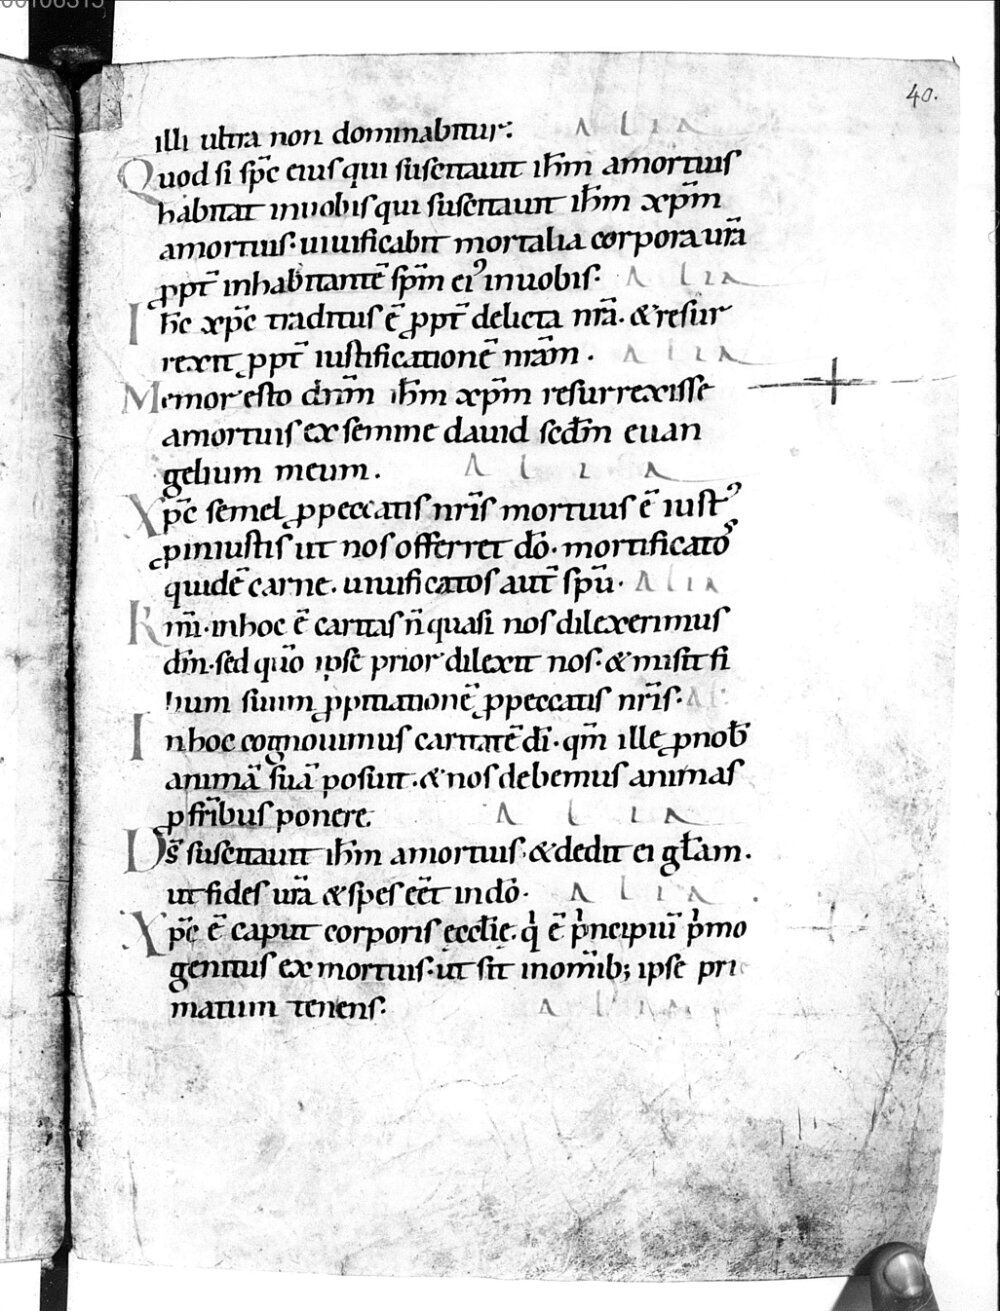 00106315
40.
illi ultra non dominabitur: ALIA
Quod si sp̄c eius qui suscitauit ihm̄ amortuis
habitat inuobis qui suscitauit ihm̄ xp̄m
amortuis· uiuificabit mortalia corpora ur̄a
ꝓpt̄ inhabitantē sp̄m eiꝰ inuobis· ALIA
Ihc̄ xp̄c traditus ē ꝓpt̄ delicta nr̄a· & resur
rexit ꝓpt̄ iustificationē nrām· ALIA
Memor esto dnm̄ ihm̄ xp̄m resurrexisse
amortuis ex semine dauid sedm̄ euan
gelium meum. A L I A
Xp̄c semel ꝓpeccatis nr̄is mortuus ē iustꝰ
ꝓiniustis ut nos offerret dō· mortificatos
quidē carne. uiuificatos aut̄ spū· ALIA
Kmī· inhoc ē caritas n̄ quasi nos dilexerimus
dm̄· sed qūo ipse prior dilexit nos· & misit fi
lium suum ꝓpitiationē ꝓpeccatis nr̄is· AL
Inhoc cognouimus caritatē dī· qm̄ ille ꝓnob̄
animā suā posuit· & nos debemus animas
ꝓ fr̄ibus ponere. A L I A
Ds̄ suscitauit ihm̄ amortuis· & dedit ei głam.
ut fides ur̄a & spes eēt indō· A L I A
Xp̄c ē caput corporis eccłie. q̇ ē pͥncipiū pͥmo
genitus ex mortuis· ut sit inomīb; ipse pri
matum tenens· A L I A